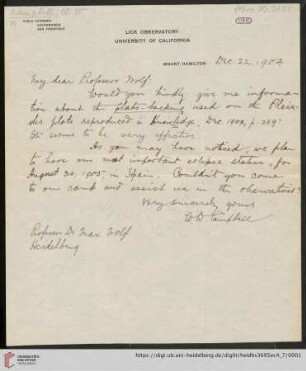 LICK OBSERVATORY
UNIVERSITY OF CALIFORNIA
MOUNT HAMILTON Dec. 22, 1904
My dear Professor Wolf:
Would you kindly give me informa-
tion about the plate-backing used on the Pleia-
des plate reproduced in Knowledge, Dec. 1904, p.
It seems to be very effective.
As you may have noticed, we plan
to have our most important eclipse station, for
August 30, 1905, in Spain. Couldn't you come
to our camp and assist us in the observations?
Very sincerely yours
W. W. Campbell
Professor Dr. Max Wolf
Heidelberg
UNIVERSITÄTS-
BIBLIOTHEK
HEIDELBERG
https://digi.ub.uni-heidelberg.de/diglit/heidhs3695ec4_7/0001